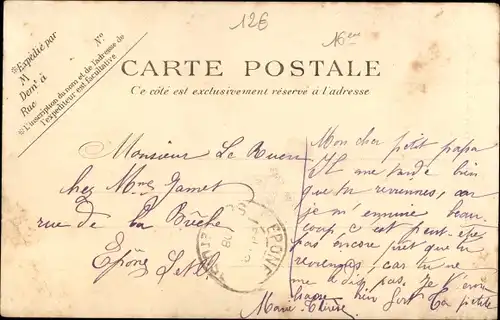 126
16ème
*Expédié par
M
Demt à
Rue
No
*L'inscription du nom et de l'adresse de
l'expéditeur est facultative
CARTE POSTALE
Ce côté est exclusivement réservé à l'adresse
Monsieur Le
chez Mme Jamet
rue de la Brêche
Epône S et O
EPONE
Mon cher petit papa
Il me tarde bien
que tu reviennes, car
je m'ennuie beau-
coup, c'est peut-être
pas encore pret que tu
reviendras, car tu ne
me dis pas. Je t'em
brasse bien fort Ta petite
Marie-Thérèse